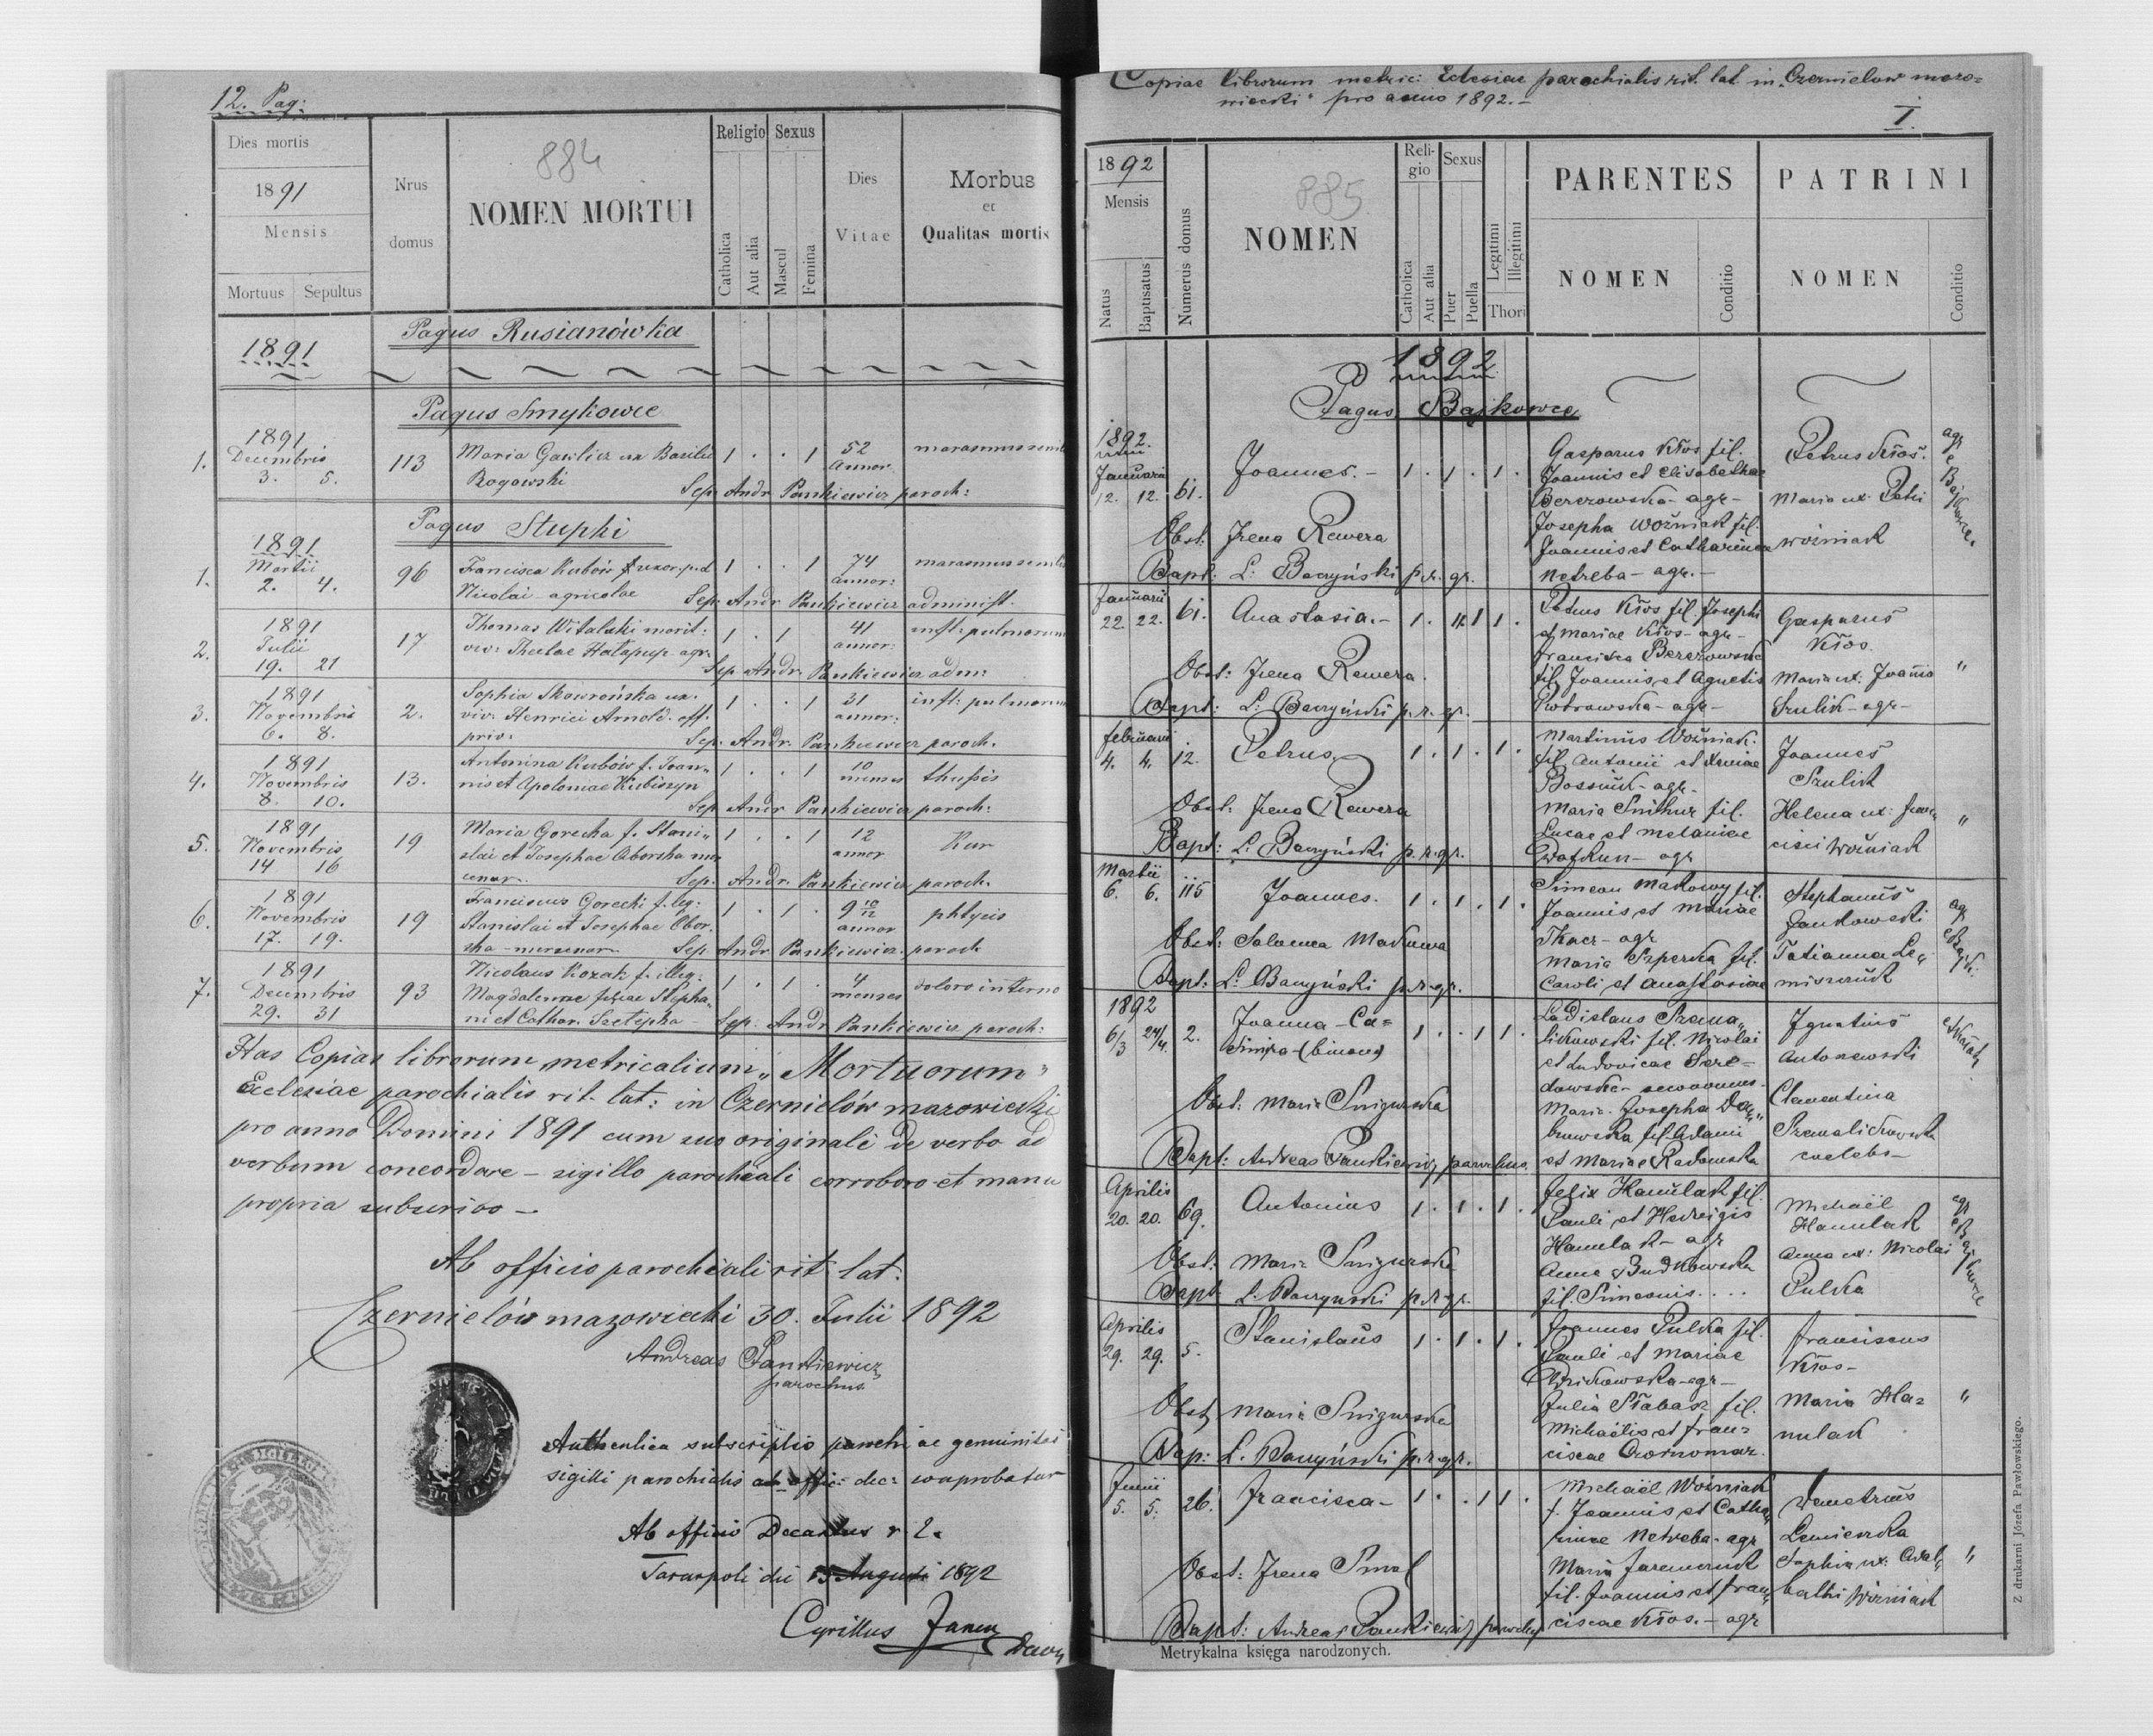 12. Pag:
884
Dies mortis
1891
Mensis
Mortuus
Sepultus
Nrus
domus
NOMEN MORTUI
Religio
Sexus
Catholica
Aut alia
Mascul
Femina
Dies
Vitae
Morbus
et
Qualitas mortis
1891
Pagus Rusianówka
Pagus Smykowce
1891
1. Decembris 113 Maria Gawlicz ux Basilii 1 . . 1 52
3. 5. Rogowski annor.
Sep. Andr. Pankiewicz paroch:
Pagus Stupki
1891
1. Martii 96 Francisca Kubów 1 . . 1 74
2. 4. Nicolai agricolae annor:
Sep. Andr. Pankiewicz administ.
1891
2. Julii 17 Thomas Witalski marit: 1 . 1 . 41
19. 21 viv: Theclae agr. annor:
Sep. Andr. Pankiewicz adm:
1891
3. Novembris 2. Sophia Skowrońska ux. 1 . . 1 31
6. 8. viv: Henrici Arnold. off. annor:
priv:
Sep. Andr. Pankiewicz paroch.
1891
4. Novembris 13. Antonina Kubów f. Joan„ 1 . . 1 10
8. 10. nis et Apoloniae menses
Sep. Andr. Pankiewicz paroch:
1891
5. Novembris 19 Maria Gorecka f. Stani„ 1 . . 1 12 Kur
14 16 slai et Josephae Oborska annor
Sep. Andr. Pankiewicz paroch.
1891
6. Novembris 19 Franciscus Gorecki f. leg: 1 . 1 . 9 10/12
17. 19. Stanislai et Josephae Obor„ annor
ska
Sep. Andr. Pankiewicz paroch
1891
7. Decembris 93 Nicolaus Kozak f. illeg: 1 . 1 . 4 dolore interno
29. 31 Magdalenae filiae Stepha„ menses
ni et Cathar.
Sep. Andr. Pankiewicz paroch:
Has Copias librorum metricalium „Mortuorum"
Ecclesiae parochialis rit. lat: in Czernielów mazowiecki
pro anno Domini 1891 cum suo originali de verbo ad
verbum concordare – sigillo parochiali corroboro et manu
propria subscribo –
Ab officio parochiali rit. lat.
Czernielów mazowiecki 30. Julii 1892
Andreas Pankiewicz
parochus
Authentica subscriptio parochi ac genuinitas
sigilli parochialis ab offic: dec:
Ab officio Decanatus r. l.
Tarnopoli die Augusti 1892
Cyrillus
Copiae librorum metric: Eclesiae parochialis rit. lat. in Czernielow mazo=
wiecki pro anno 1892. –
I.
885
1892
Mensis
Natus
Baptisatus
Numerus domus
NOMEN
Reli-
gio
Sexus
Catholica
Aut alia
Puer
Puella
Legitimi
Illegitimi
Thori
PARENTES
NOMEN
Conditio
PATRINI
NOMEN
Conditio
1892
Pagus Bajkowce
1892.
Januarii
12. 12. 61. Joannes. – 1 . 1 . 1 .
Gasparus Kłos fil.
Joannis et Elisabethae
Berezowska – agr –
Josepha Woźniak fil.
Joannis et Catharinae
Netreba – agr. –
Petrus Kłos.
Maria ux. Petri
Woźniak
agr
Bajkowce
Obst: Irena Rewera
Bapt: L. Baczyński p. r. gr.
Januarii
22. 22. 61. Anastasia. –
Petrus Kłos fil. Josephi
et Mariae Kłos – agr –
Francisca Berezowska
fil. Joannis et Agnetis
Piotrowska – agr –
Gasparus
Kłos.
Maria ux. Joannis
Szulik – agr –
"
Obst: Irena Rewera.
Bapt: L: Baczyński p. r. gr.
Februarii
4. 4. 12. Petrus. 1 . 1 . 1 .
Martinus Woźniak.
fil. Antonii et Xeniae
agr –
Maria fil.
Lucae et Melaniae
agr
Joannes
Szulik
Helena ux: Fran„
cisci Woźniak
"
Obst: Irena Rewera
Bapt: L. Baczyński p. r. gr.
Martii
6. 6. 115 Joannes. 1 . 1 . 1 .
Simeon Makowy fil.
Joannis et Mariae
Tkacz – agr
Maria fil.
Caroli et Anastasiae
Stephanus
Jankowski
Tatianna Le„
Obst: Salomea
Bapt: L. Baczyński p. r. gr.
1892
6/3 24/4. 2. Joanna – Ca=
simira (binom) 1 . . 1 1 .
Ladislaus
fil. Nicolai
et Ludovicae
Maria Josepha
fil. Adami
et Mariae Radomska
Ignatius
Clementina
caelebs –
Obst: Maria Snigurska
Bapt: Andreas Pankiewicz parochus
Aprilis
20. 20. 69. Antonius 1 . 1 . 1 .
Felix Hamulak fil.
Pauli et Hedvigis
Hamulak – agr
Anna Budkowska
fil. Simeonis. . . .
Michaël
Hamulak
Anna ux: Nicolai
Pulka
agr
Bajkowce
Obst: Maria Snigurska
Bapt L. Baczyński p. r. gr.
Aprilis
29. 29. 5. Stanislaus 1 . 1 . 1 .
Joannes Pulka fil.
Pauli et Mariae
agr –
Julia Słabasz fil.
Michaëlis et Fran=
ciscae
Franciscus
Kłos –
Maria Ha=
mulak
"
Obst Maria Snigurska
Bap: L. Baczyński p. r. gr.
Junii
5. 5. 26. Francisca – 1 . . 1 1 .
Michaël Woźniak
f. Joannis et Catha„
rinae Netreba – agr
Maria
fil. Joannis et Fran„
ciscae Kłos. – agr
Demetrius
Sophia ux:
Woźniak
"
Obst: Irena
Bapt: Andreas Pankiewicz parochus
Metrykalna księga narodzonych.
Z drukarni Józefa Pawłowskiego.